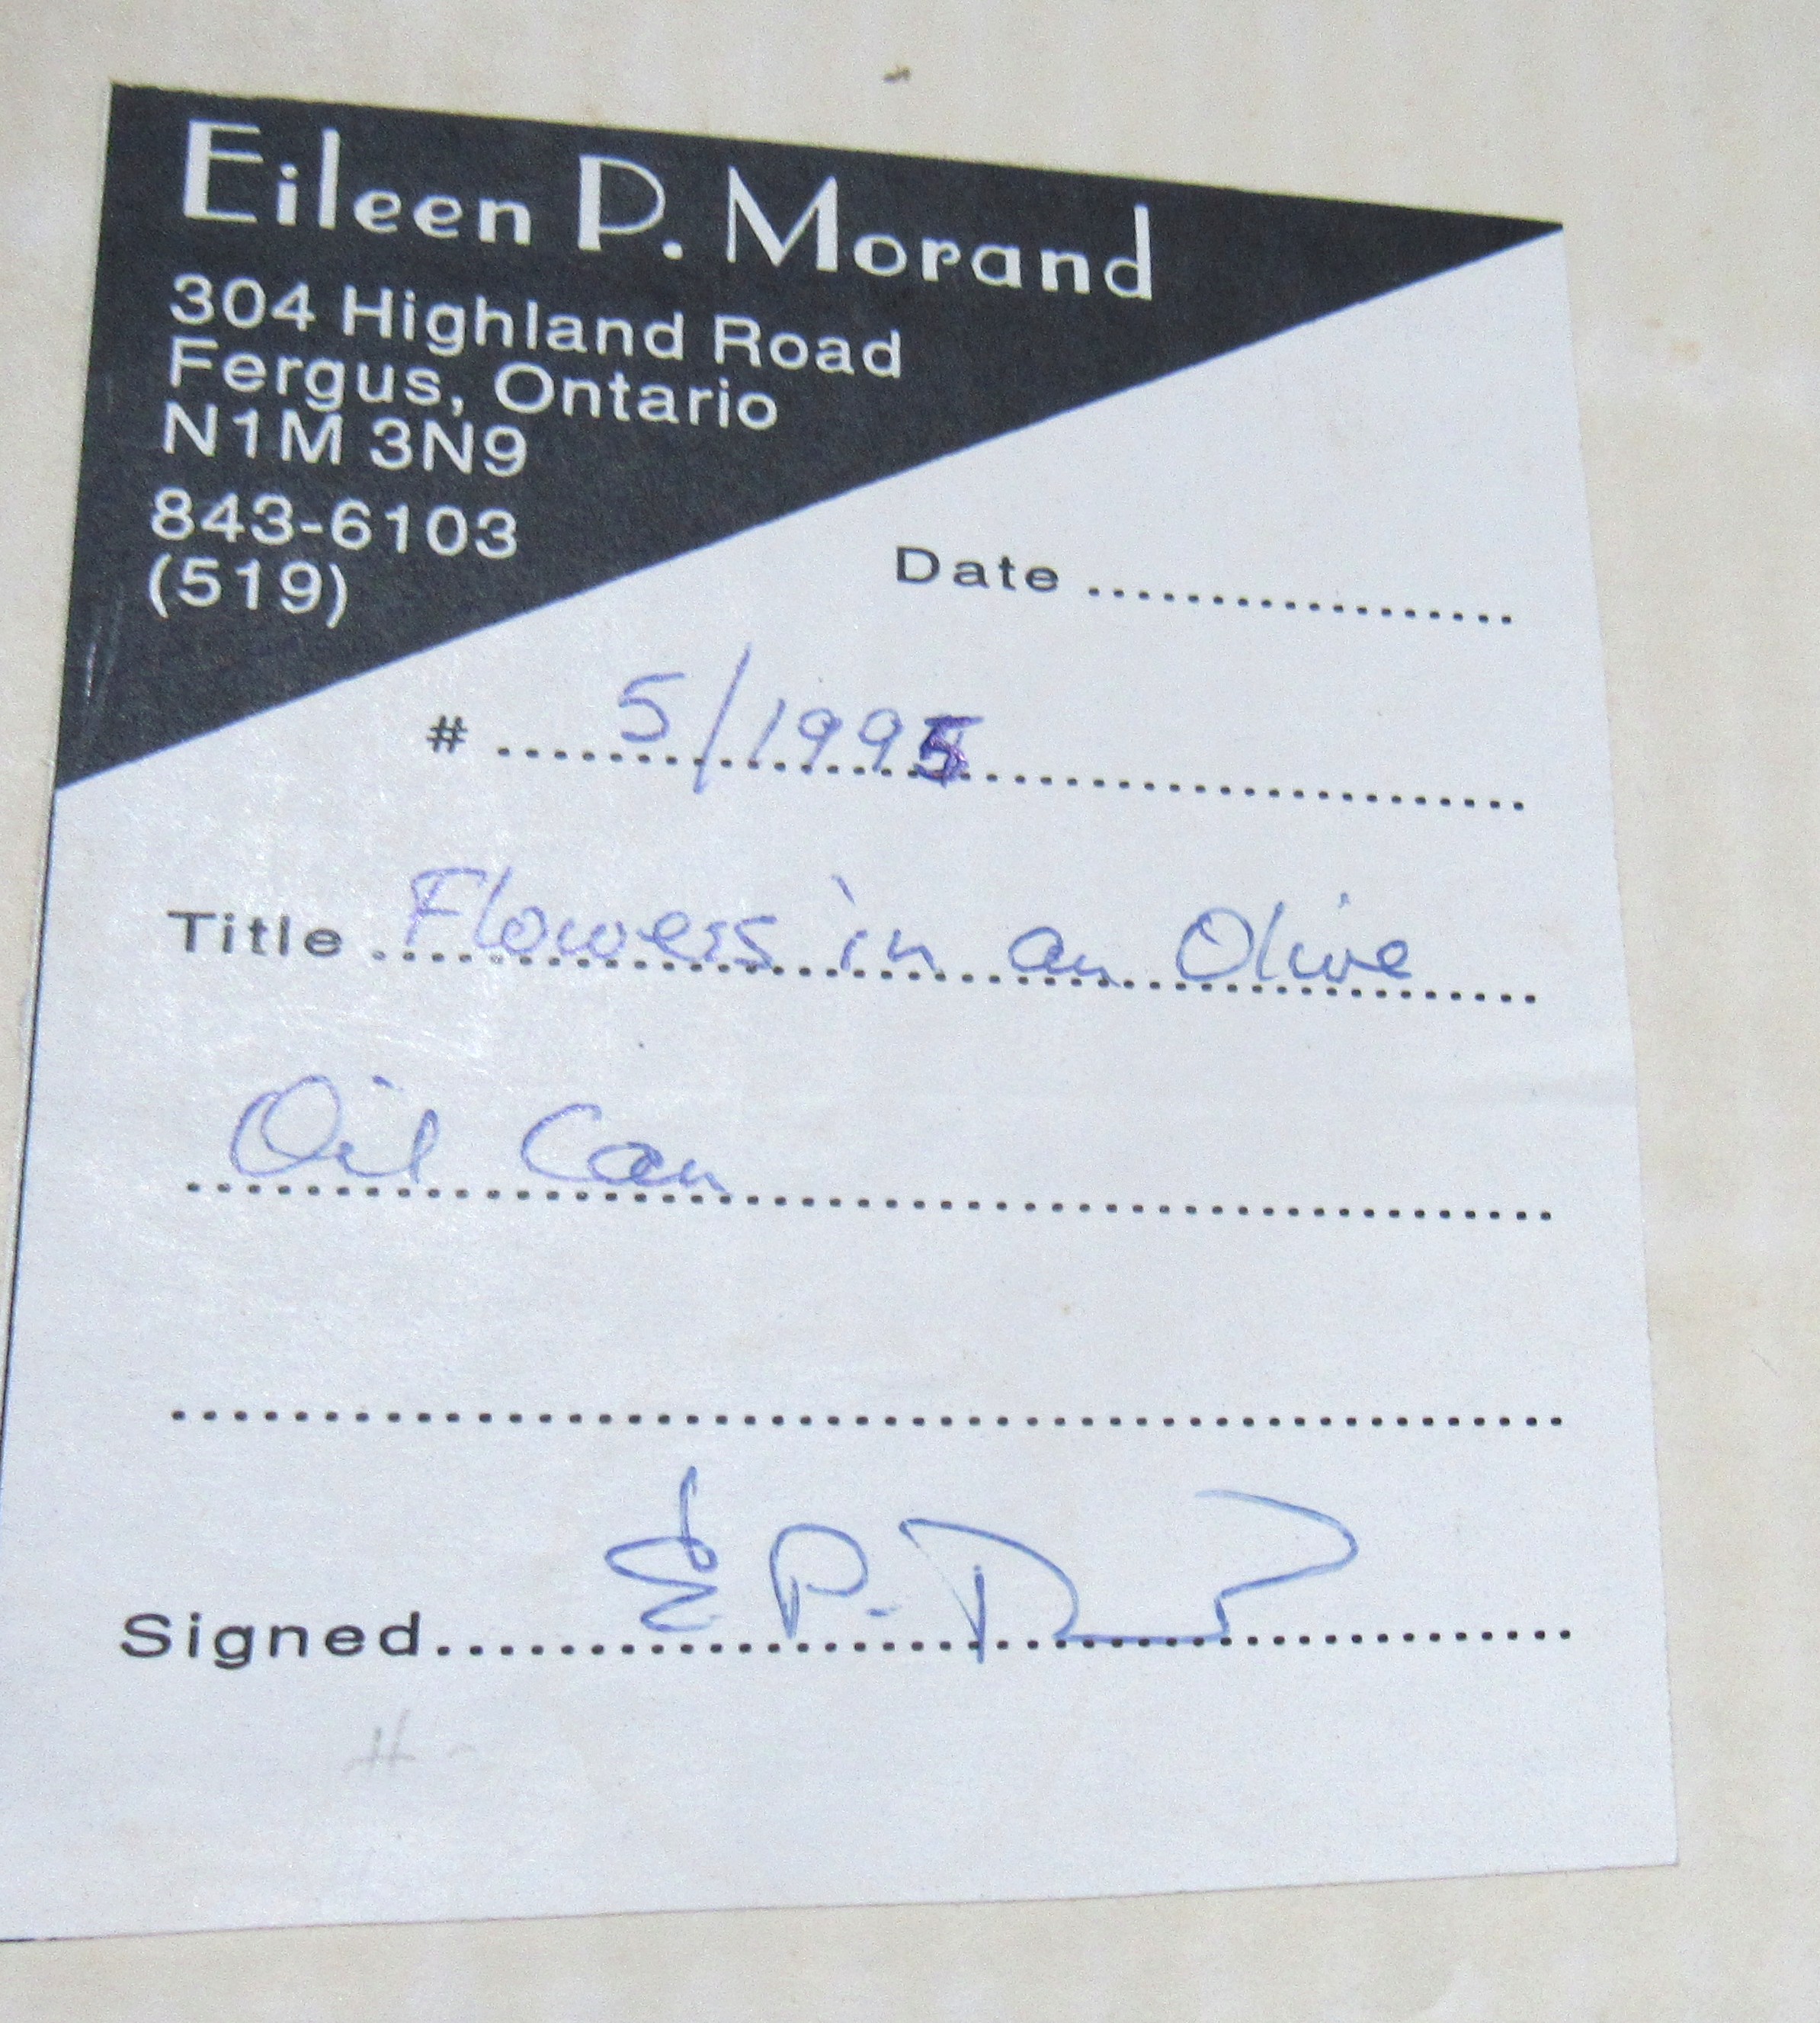 Eileen P. Morand
304 Highland Road
Fergus, Ontario
N1M 3N9
843-6103
(519)
Date ..................
# 5/1995
Title Flowers in an Olive
Oil Can
Signed E P.
#-